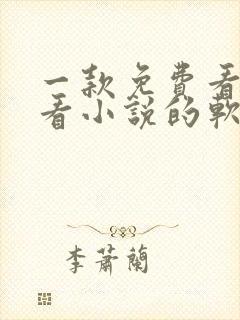 一款免费看
看小説的軟
李蕭蘭